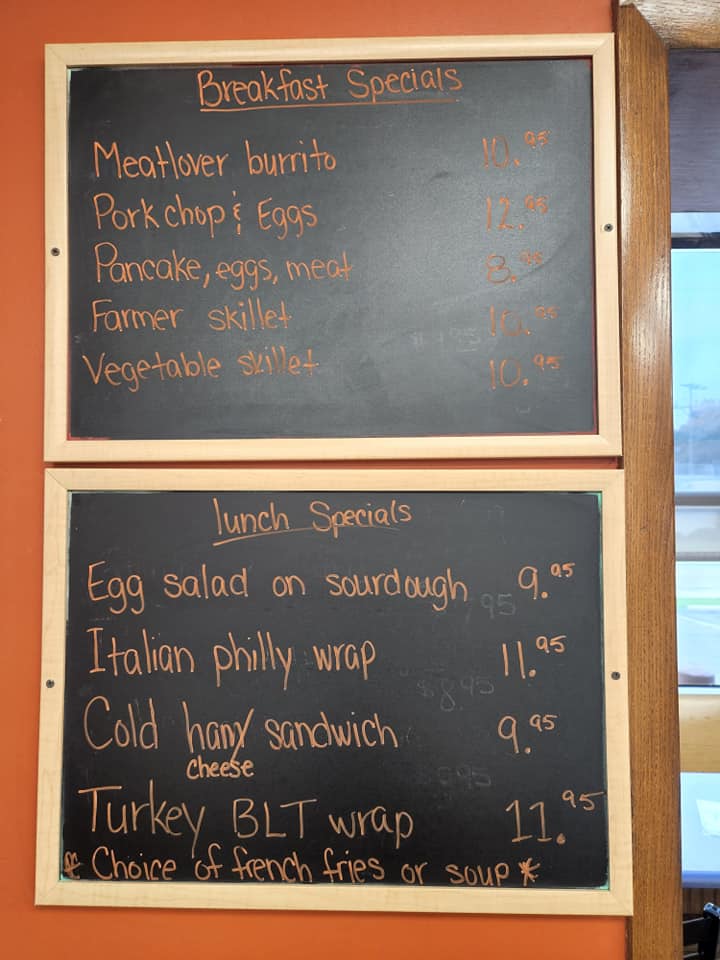 Breakfast Specials
Meatlover burrito 10.95
Pork chop & Eggs 12.95
Pancake, eggs, meat 8.95
Farmer skillet 10.95
Vegetable skillet 10.95
lunch Specials
Egg salad on sourdough 9.95
Italian philly wrap 11.95
Cold ham/ sandwich 9.95
cheese
Turkey BLT wrap 11.95
* Choice of french fries or soup *